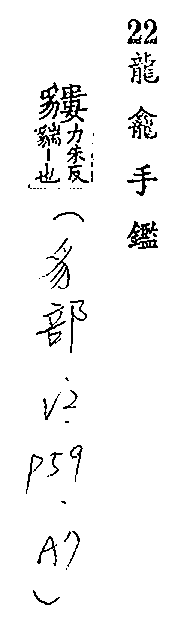 22龍龕手鑑
貗力朱反貒|也
(豸部.V2.P59.A7)